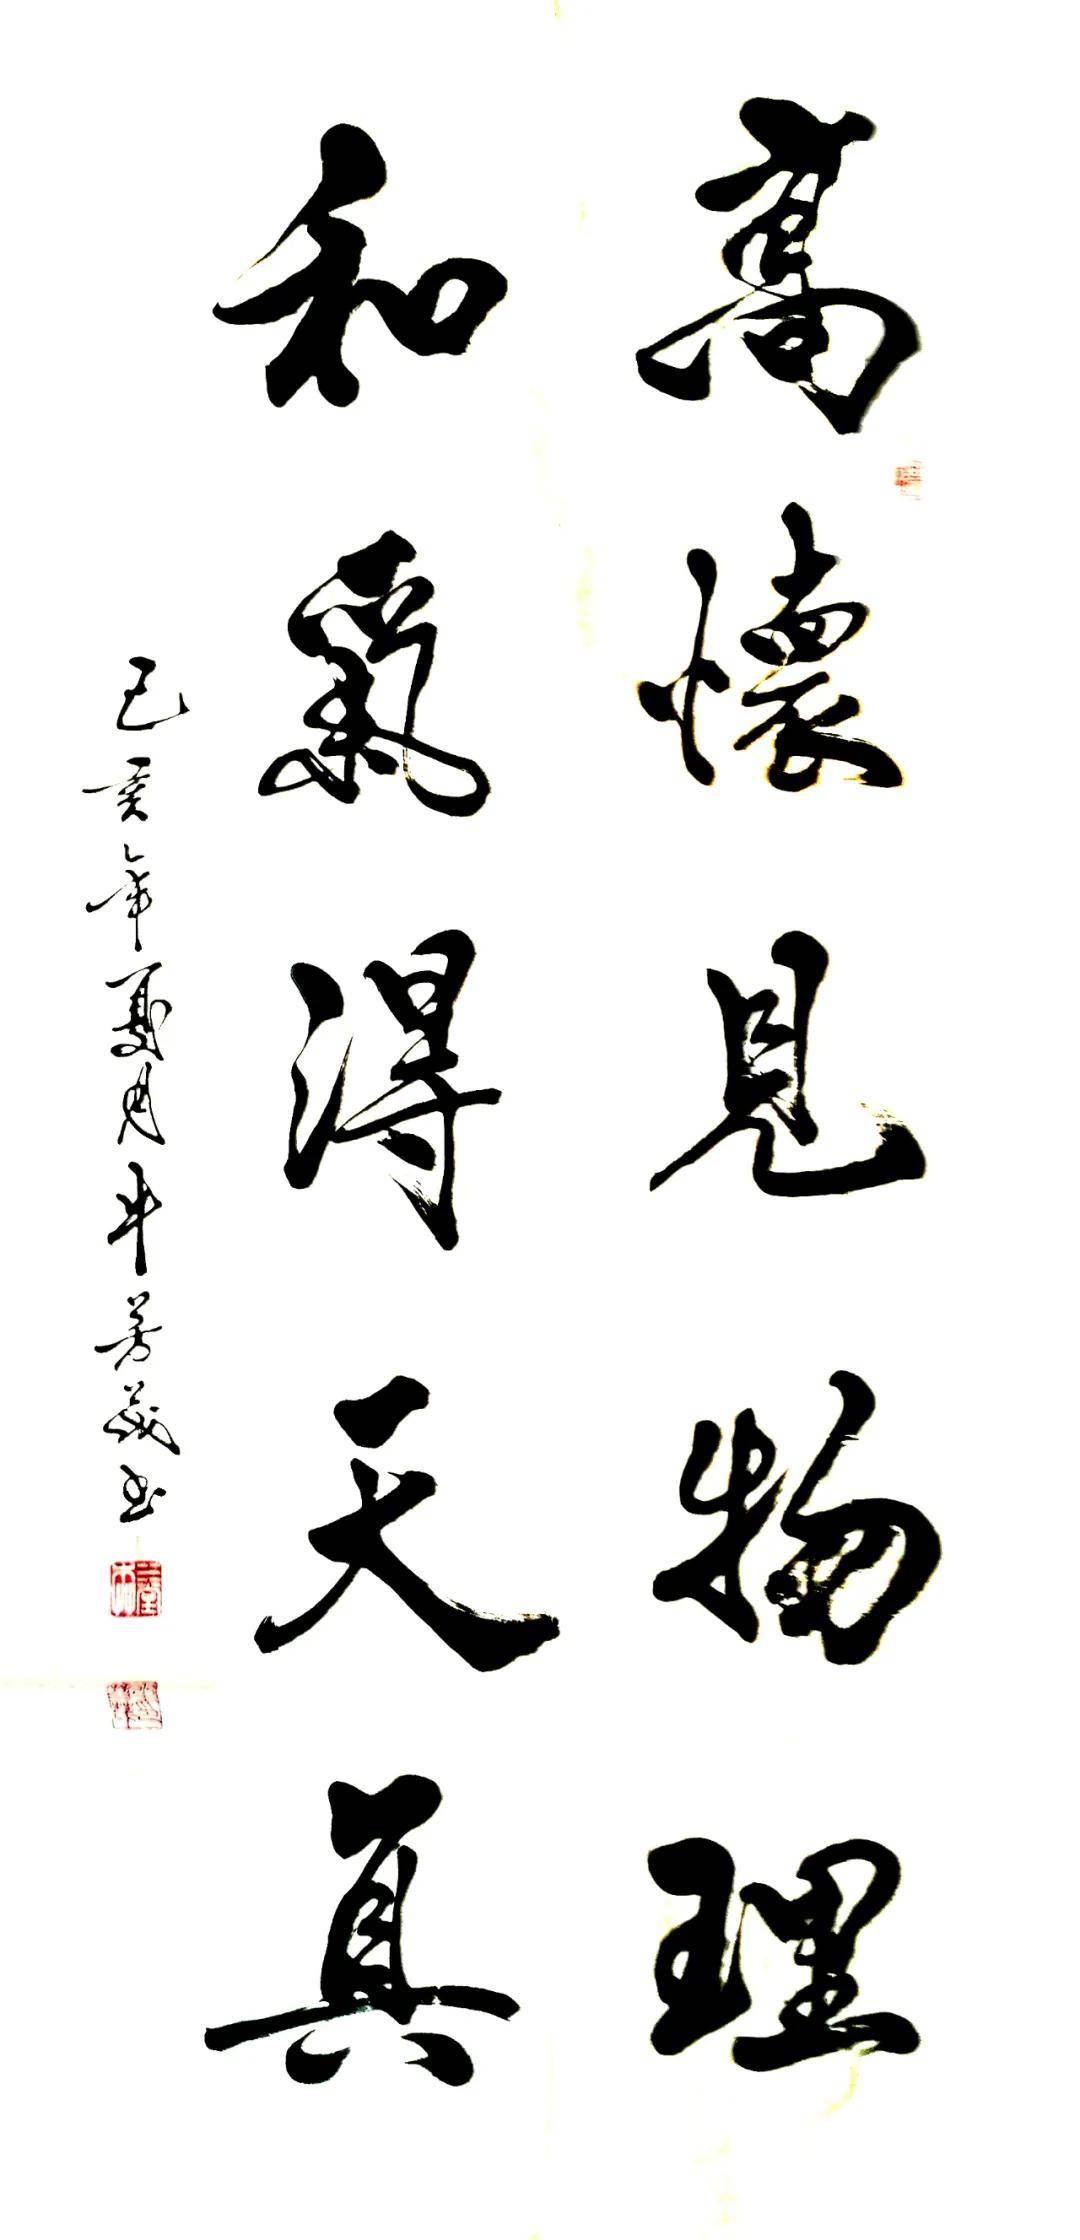 高懷見物理
和氣得天真
己亥年夏月牛芳義书